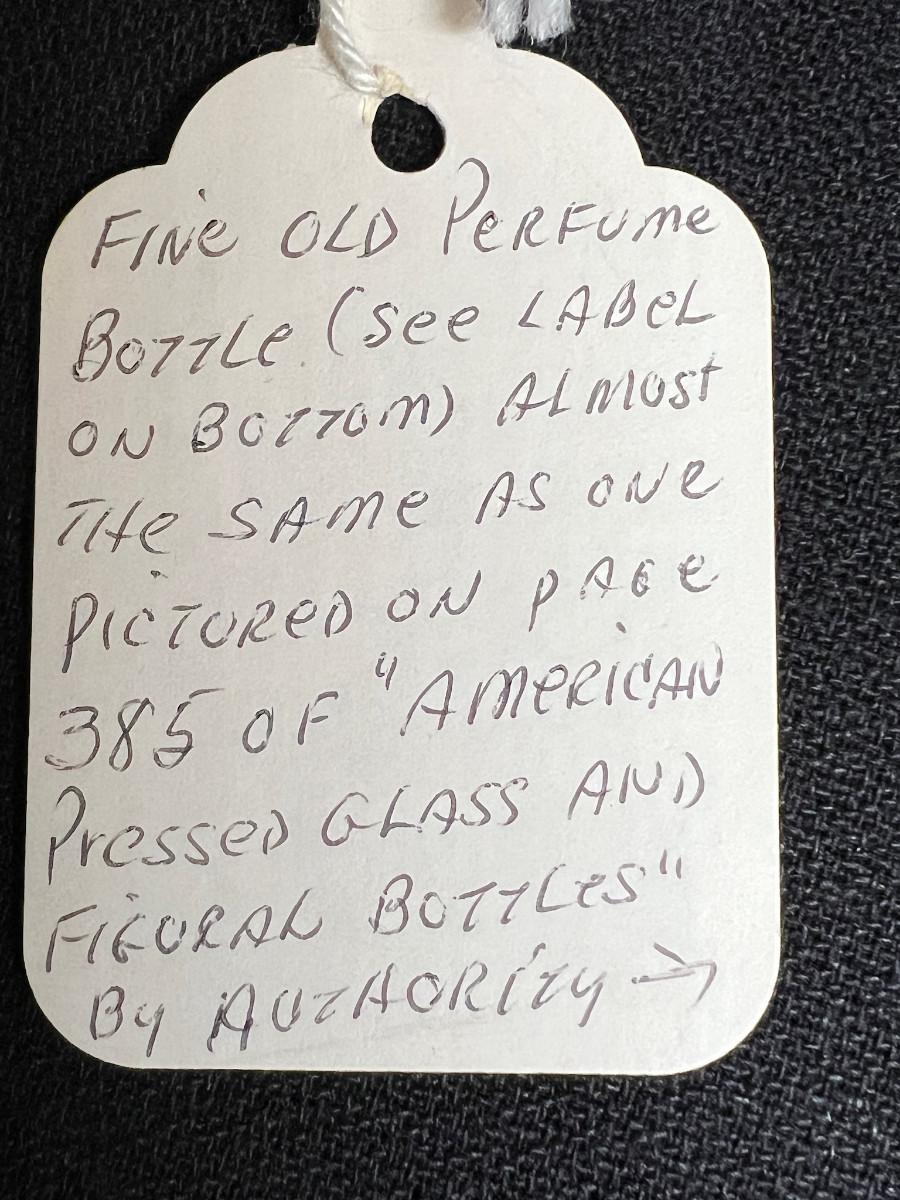 FINE OLD PERFUME
BOTTLE (SEE LABEL
ON BOTTOM) ALMOST
THE SAME AS ONE
PICTURED ON PAGE
385 OF "AMERICAN
PRESSED GLASS AND
FIGURAL BOTTLES"
BY AUTHORITY →